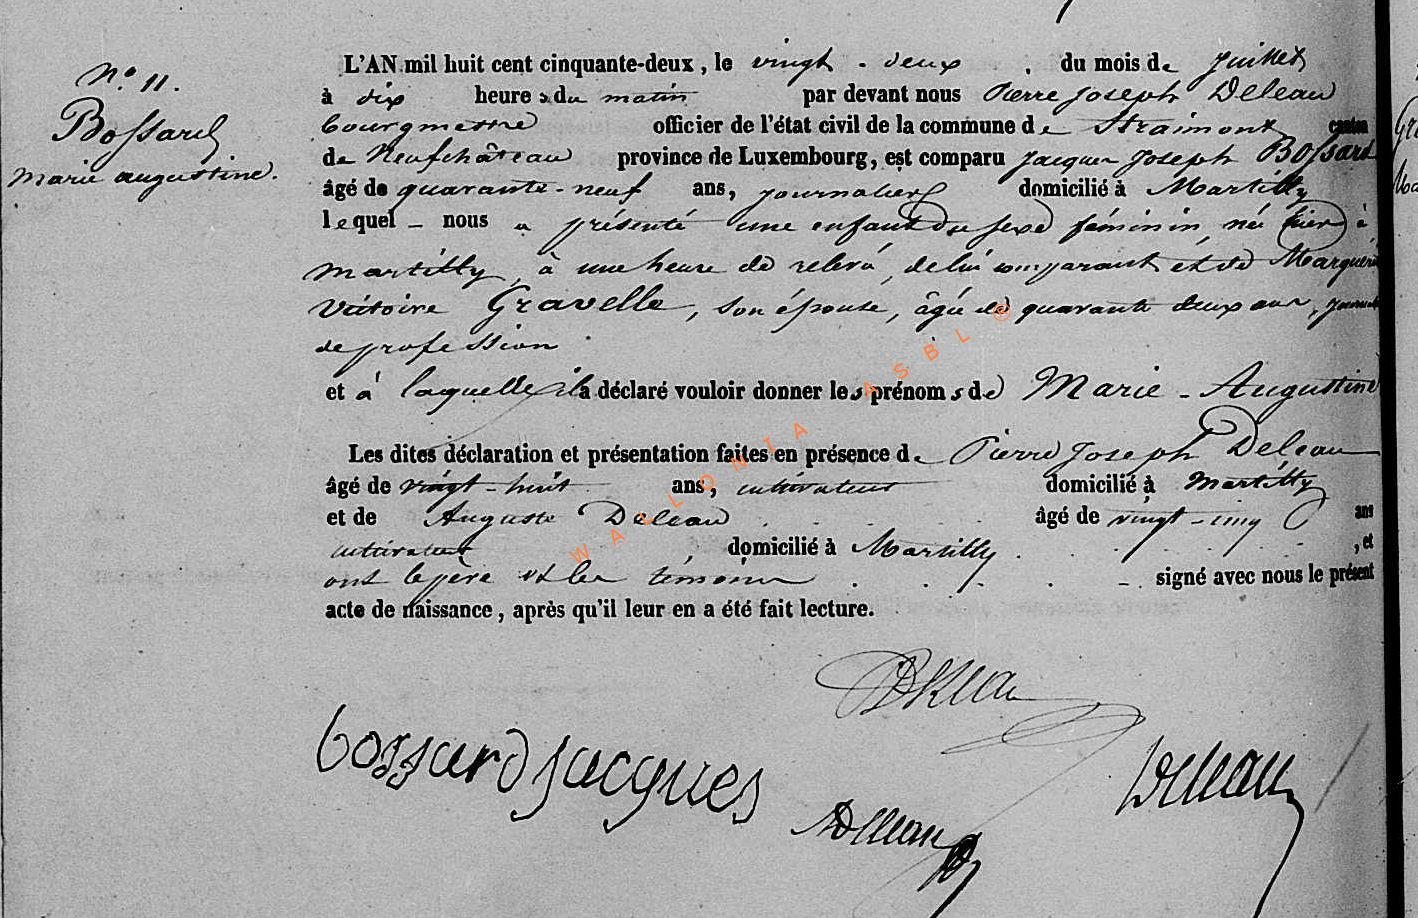 N.º 11.
Bossard
Marie augustine.
L'AN mil huit cent cinquante-deux, le vingt-deux du mois de juillet
à dix heures du matin par devant nous Pierre Joseph Deleau
bourgmestre officier de l'état civil de la commune de Straimont canton
de Neufchâteau province de Luxembourg, est comparu jacques joseph Bossard
âgé de quarante-neuf ans, journalier domicilié à Martilly
lequel nous a présenté une enfant du sexe féminin, née hier à
martilly, à une heure de relevé, de lui comparant et de Marguerite
Victoire Gravelle, son épouse, âgée de quarante deux ans,
de profession
et à laquelle il a déclaré vouloir donner les prénoms de Marie-Augustine
Les dites déclaration et présentation faites en présence de Pierre Joseph Deleau
âgé de vingt-huit ans, cultivateur domicilié à Martilly
et de Auguste Deleau âgé de vingt-cinq ans
cultivateur domicilié à Martilly, et
ont le père et les témoins signé avec nous le présent
acte de naissance, après qu'il leur en a été fait lecture.
bossard jacques
ADeleau
Deleau
WALLONIA ASBL ©